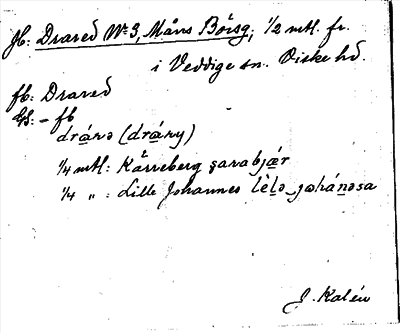 jb: Drared No 3, Måns Börsg; 1/2 mtl. fr.
i Veddige sn. Viske hd.
fb: Drared
GS: - fb
dránə (drány)
1/4 mtl: Kärreberg şarabjǽr
1/4 " : Lille Johannes lèlə johánəsa
J. Kalén